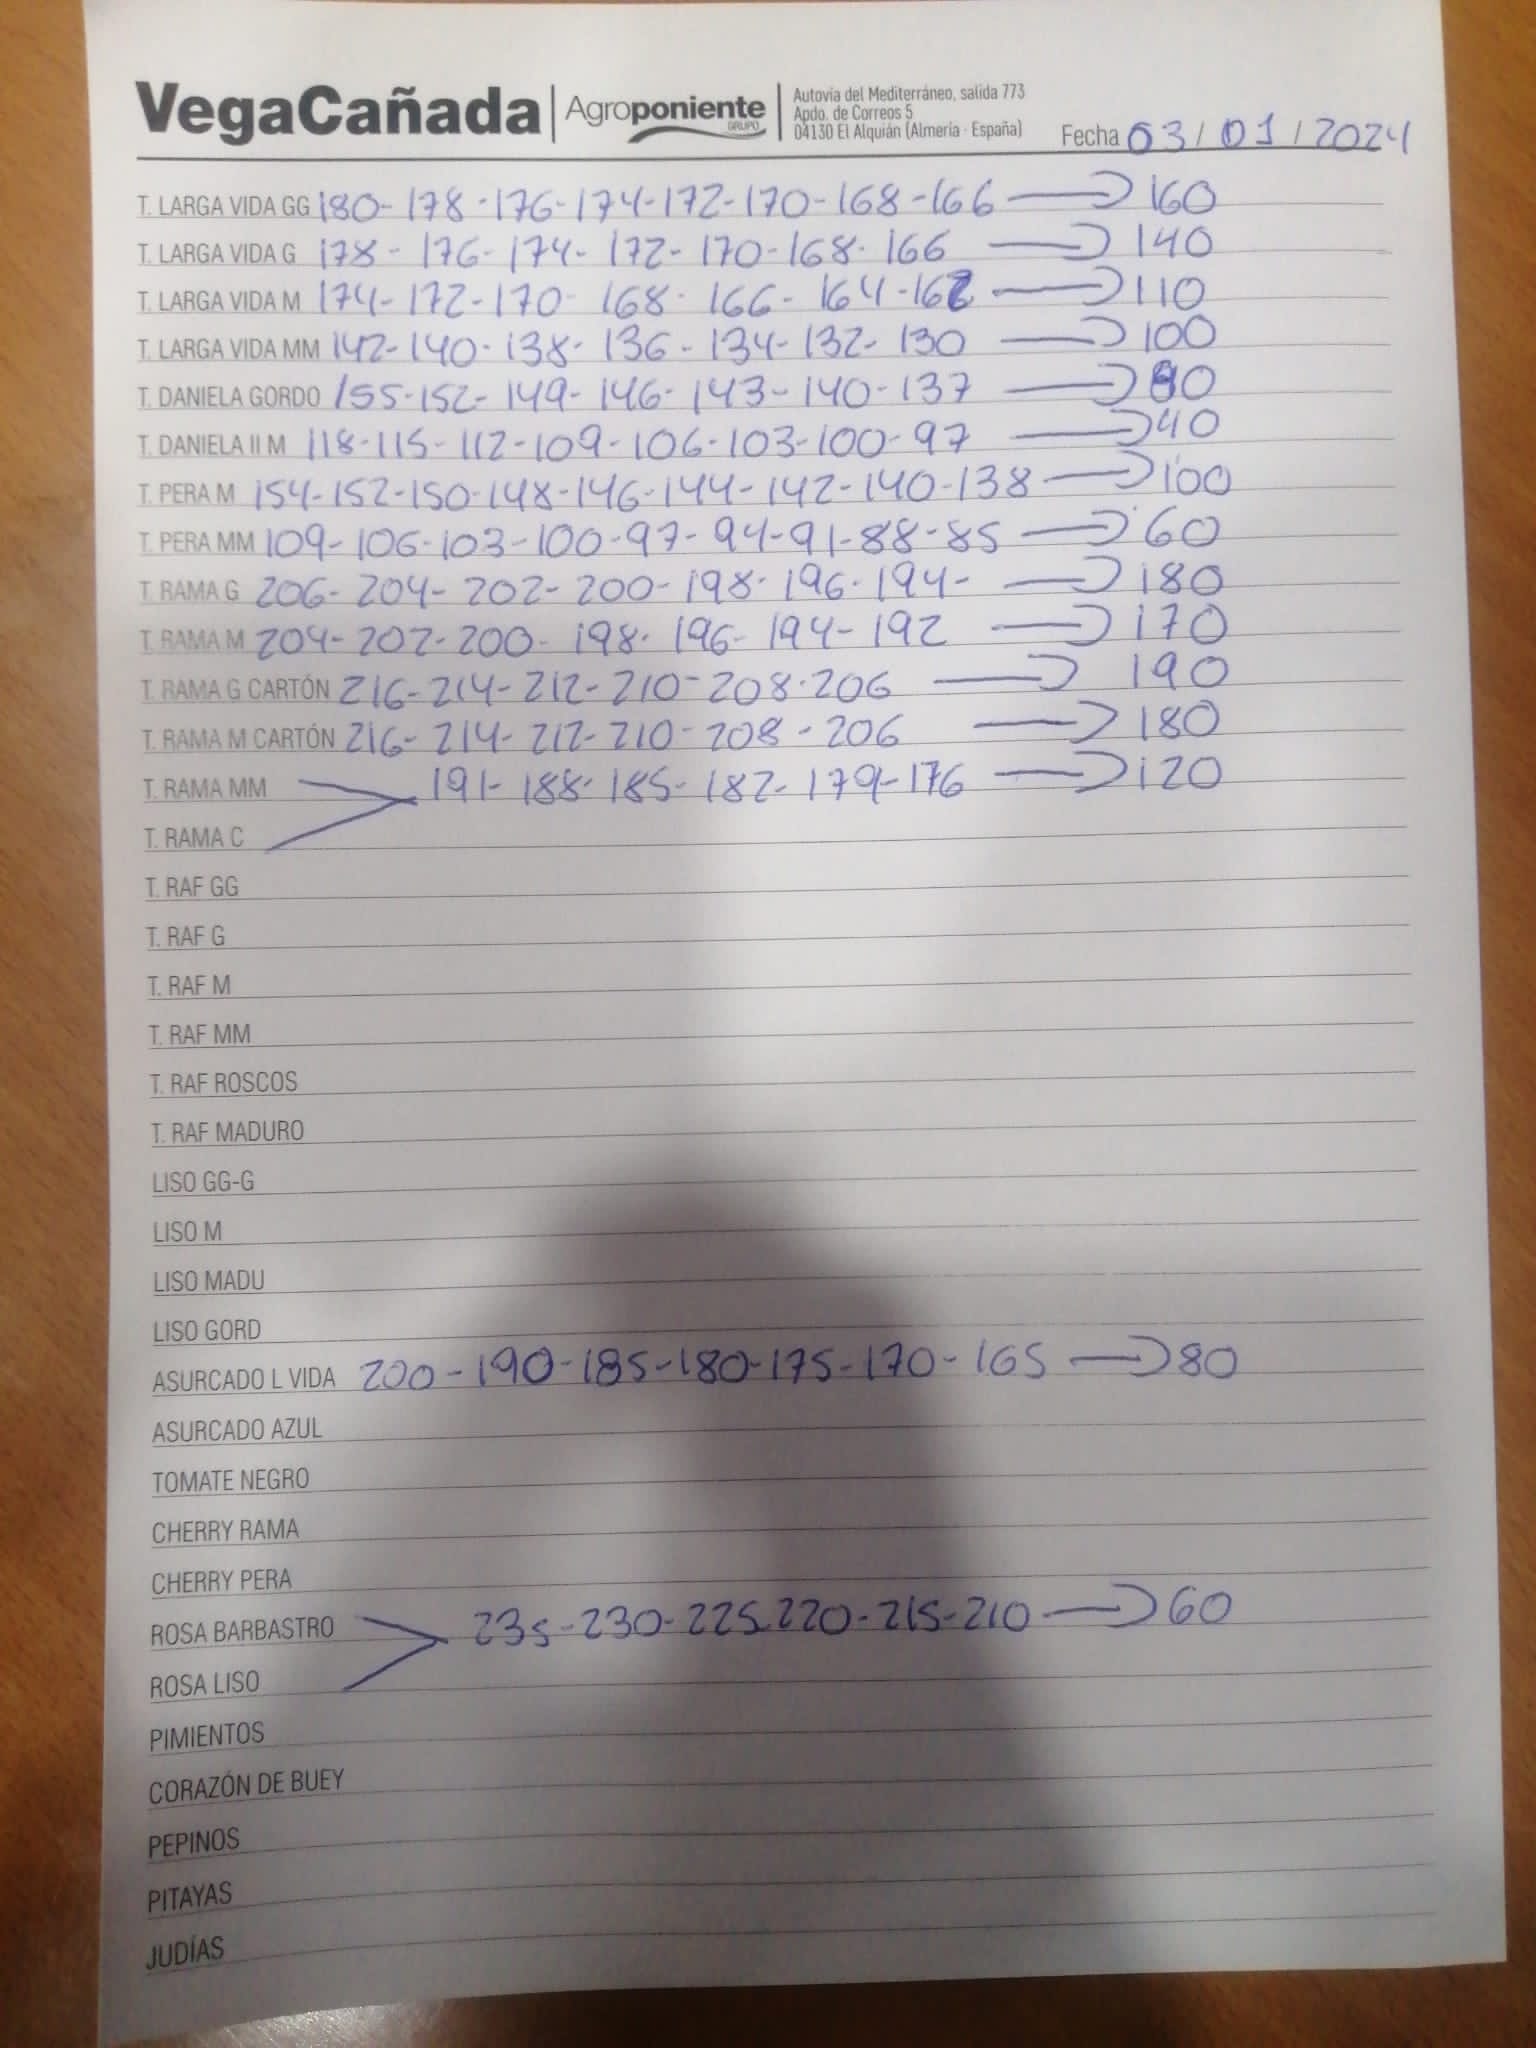 VegaCañada Agroponiente GRUPO
Autovía del Mediterráneo, salida 773
Apdo. de Correos 5
04130 El Alquián (Almería - España)
Fecha 03/01/2024
T. LARGA VIDA GG 180-178-176-174-172-170-168-166 → 160
T. LARGA VIDA G 178-176-174-172-170-168-166 → 140
T. LARGA VIDA M 174-172-170-168-166-164-162 → 110
T. LARGA VIDA MM 142-140-138-136-134-132-130 → 100
T. DANIELA GORDO 155-152-149-146-143-140-137 →
T. DANIELA II M 118-115-112-109-106-103-100-97 → 40
T. PERA M 154-152-150-148-146-144-142-140-138 → 100
T. PERA MM 109-106-103-100-97-94-91-88-85 → 60
T. RAMA G 206-204-202-200-198-196-194- → 180
T. RAMA M 204-202-200-198-196-194-192 → 170
T. RAMA G CARTÓN 216-214-212-210-208-206 → 190
T. RAMA M CARTÓN 216-214-212-210-208-206 → 180
T. RAMA MM 191-188-185-182-179-176 → 120
T. RAMA C
T. RAF GG
T. RAF G
T. RAF M
T. RAF MM
T. RAF ROSCOS
T. RAF MADURO
LISO GG-G
LISO M
LISO MADU
LISO GORD
ASURCADO L VIDA 200-190-185-180-175-170-165 → 80
ASURCADO AZUL
TOMATE NEGRO
CHERRY RAMA
CHERRY PERA
ROSA BARBASTRO 235-230-225-220-215-210 → 60
ROSA LISO
PIMIENTOS
CORAZÓN DE BUEY
PEPINOS
PITAYAS
JUDÍAS